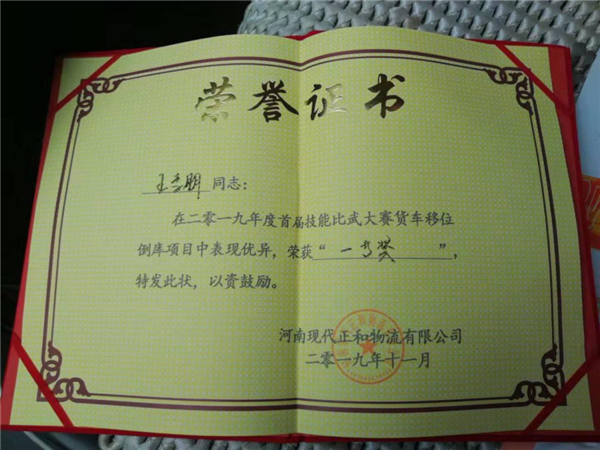 荣誉证书
王李明 同志：
在二零一九年度首届技能比武大赛货车移位
倒库项目中表现优异，荣获“ 一等奖 ”，
特发此状，以资鼓励。
河南现代正和物流有限公司
二零一九年十一月